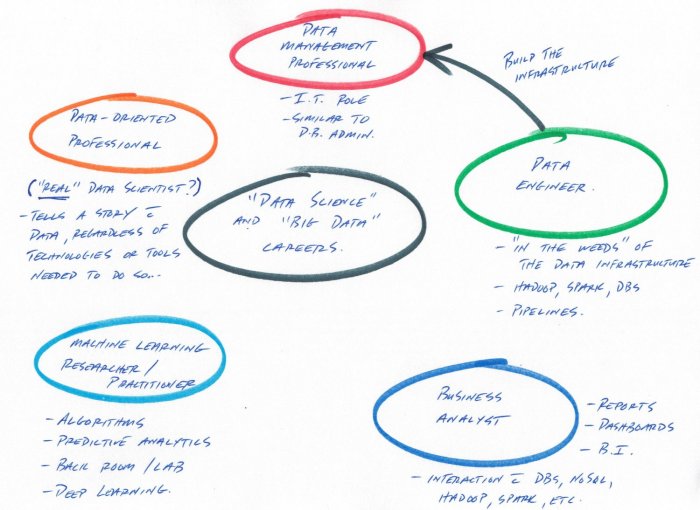 DATA
MANAGEMENT
PROFESSIONAL
- I.T. ROLE
- SIMILAR TO
D.B. ADMIN.
BUILD THE
INFRASTRUCTURE
DATA-ORIENTED
PROFESSIONAL
("REAL" DATA SCIENTIST?)
- TELLS A STORY C̄
DATA, REGARDLESS OF
TECHNOLOGIES OR TOOLS
NEEDED TO DO SO...
"DATA SCIENCE"
AND "BIG DATA"
CAREERS.
DATA
ENGINEER.
- "IN THE WEEDS" OF
THE DATA INFRASTRUCTURE
- HADOOP, SPARK, DBS
- PIPELINES.
MACHINE LEARNING
RESEARCHER/
PRACTITIONER
- ALGORITHMS
- PREDICTIVE ANALYTICS
- BACK ROOM/LAB
- DEEP LEARNING.
BUSINESS
ANALYST
- REPORTS
- DASHBOARDS
- B.I.
- INTERACTION C̄ DBS, NOSQL,
HADOOP, SPARK, ETC.